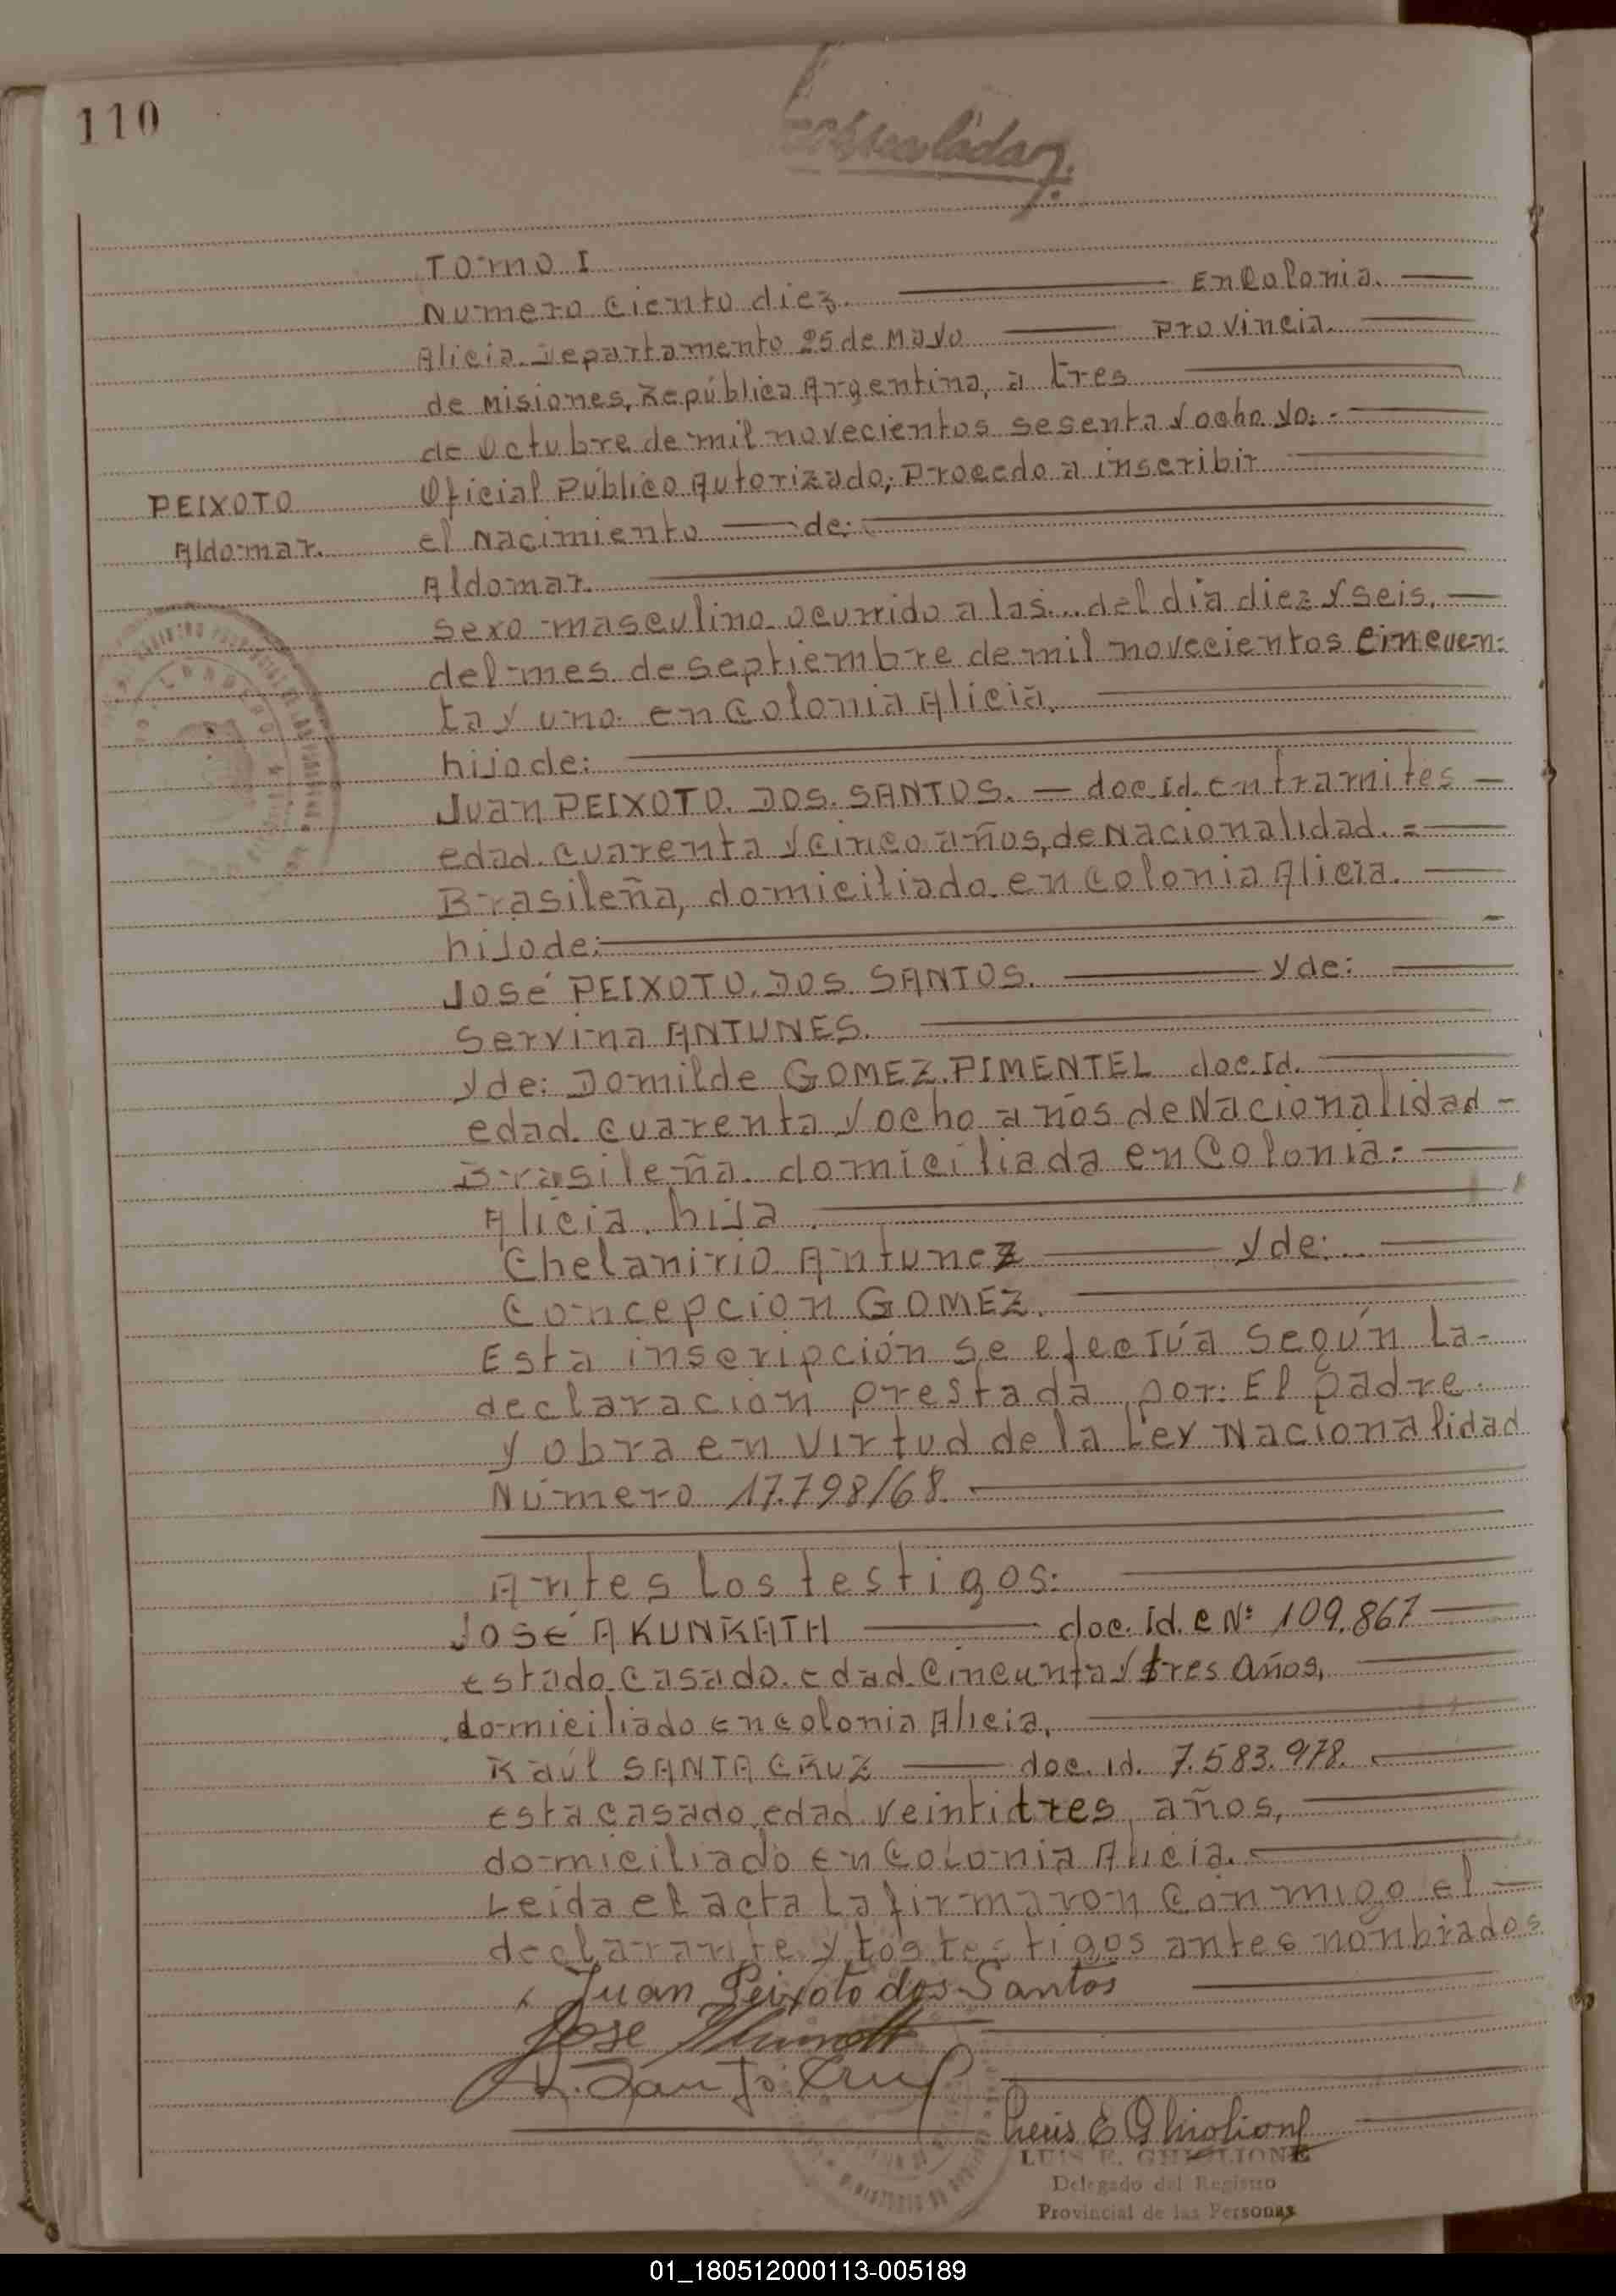 110
Tomo I
Numero Ciento diez. En Colonia.
Alicia. Departamento 25 de Mayo Provincia.
de Misiones, República Argentina, a tres
de Octubre de mil novecientos sesenta y ocho yo:-
Oficial Público Autorizado; Procedo a inscribir
PEIXOTO
el Nacimiento de:
Aldomar.
Aldomar.
sexo masculino ocurrido a las... del dia diez y seis.
del mes de septiembre de mil novecientos cincuen:
ta y uno. en Colonia Alicia.
hijo de:
Juan PEIXOTO. DOS. SANTOS. — doc. id. en tramites —
edad. cuarenta y cinco años, de Nacionalidad. =
Brasileña, domiciliado. en Colonia Alicia.
hijo de:
José PEIXOTO. DOS. SANTOS. y de:
Servina ANTUNES.
y de: Domilde GOMEZ. PIMENTEL doc. Id.
edad. cuarenta y ocho años de Nacionalidad -
Brasileña. domiciliada en Colonia:
Alicia. hija.
Chelanirio Antunez y de:
Concepcion GOMEZ.
Esta inscripción se efectúa según la-
declaración prestada por: El padre.
y obra en virtud de la Ley Nacionalidad
Número 17.798/68.
Antes los testigos:
José A KUNRATH doc. Id. C Nº 109.867
estado. casado. edad. cincunta y tres años,
domiciliado en colonia Alicia.
Raúl SANTA CRUZ doc. id. 7.583.978.
esta casado. edad. veintitres años,
domiciliado en Colonia Alicia.
Leida el acta la firmaron conmigo el —
declarante y los testigos antes nonbrados
Juan Peixoto dos Santos
Jose
R. Santa Cruz
Luis E Ghiglione
LUIS E. GHIGLIONE
Delegado del Registro
Provincial de las Personas
01_180512000113-005189